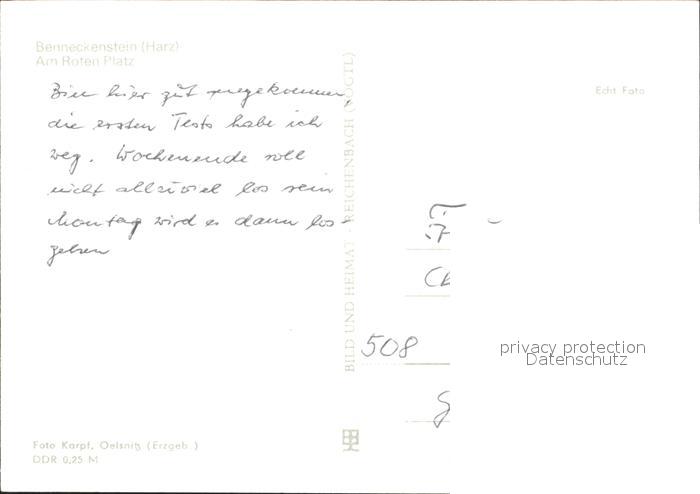 Benneckenstein (Harz)
Am Roten Platz
Bin hier gut angekommen,
die ersten Tests habe ich
weg. Wochenende soll
nicht allzuviel los sein
Montag wird es dann los-
gehen
Foto Karpf, Oelsnitz (Erzgeb.)
DDR 0,25 M
BILD UND HEIMAT · REICHENBACH (VOGTL)
Echt Foto
508
privacy protection
Datenschutz